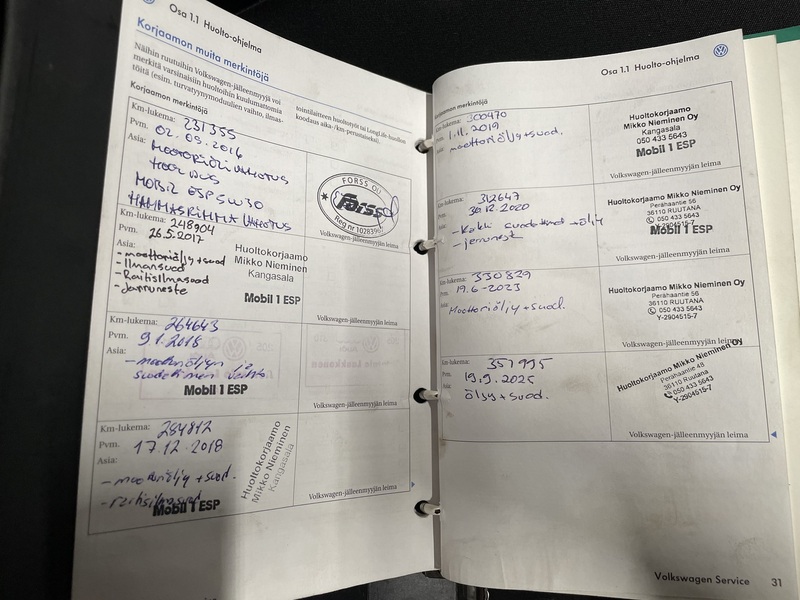 Osa 1.1 Huolto-ohjelma
Korjaamon muita merkintöjä
Näihin ruutuihin Volkswagen-jälleenmyyjä voi
merkitä varsinaisiin huoltoihin kuulumattomia
töitä (esim. turvatyynymoduulien vaihto, ilmas-
tointilaitteen huoltotyöt tai LongLife-huollon
koodaus aika-/km-perusteiseksi).
Korjaamon merkintöjä
Km-lukema: 231355
Pvm. 02.09.2016
Asia: MOOTTORIÖLJI VAIHOTUS
MOBIL ESP 5W30
HAMMASHIHNA VAIHOTUS
FORSS OY
Forss
Reg nr
Volkswagen-jälleenmyyjän leima
Km-lukema: 248904
Pvm. 26.5.2017
Asia:
- moottoriöljy + suod
- Ilmansuod
- Raitisilmasuod
- Jarruneste
Huoltokorjaamo
Mikko Nieminen
Kangasala
Mobil 1 ESP
Volkswagen-jälleenmyyjän leima
Km-lukema: 264643
Pvm. 9.1.2018
Asia:
- moottoriöljyn ja
suodattimen vaihto
Mobil 1 ESP
Volkswagen-jälleenmyyjän leima
Km-lukema: 284812
Pvm. 17.12.2018
Asia:
- moottoriöljy + suod.
- raitisilmasuod
Mobil 1 ESP
Huoltokorjaamo
Mikko Nieminen
Kangasala
Volkswagen-jälleenmyyjän leima
Osa 1.1 Huolto-ohjelma
Korjaamon merkintöjä
Km-lukema: 300470
Pvm. 1.11.2019
Asia: moottoriöljy + suod.
Huoltokorjaamo
Mikko Nieminen Oy
Kangasala
050 433 5643
Mobil 1 ESP
Volkswagen-jälleenmyyjän leima
Km-lukema: 312647
Pvm. 30.12.2020
Asia: - Kaikki suodattimet + öljy
- jarruneste
Huoltokorjaamo Mikko Nieminen Oy
Perähaantie 56
36110 RUUTANA
050 433 5643
Mobil 1 ESP
Volkswagen-jälleenmyyjän leima
Km-lukema: 330829
Pvm. 19.6-2023
Asia:
Moottoriöljy + suod.
Huoltokorjaamo Mikko Nieminen Oy
Perähaantie 56
36110 RUUTANA
050 433 5643
Y-2904515-7
Volkswagen-jälleenmyyjän leima
Km-lukema: 351995
Pvm. 19.9.2025
Asia: öljy + suod.
Huoltokorjaamo Mikko Nieminen Oy
Perähaantie 48
36110 Ruutana
050 433 5643
Y-2904515-7
Volkswagen-jälleenmyyjän leima
Volkswagen Service 31